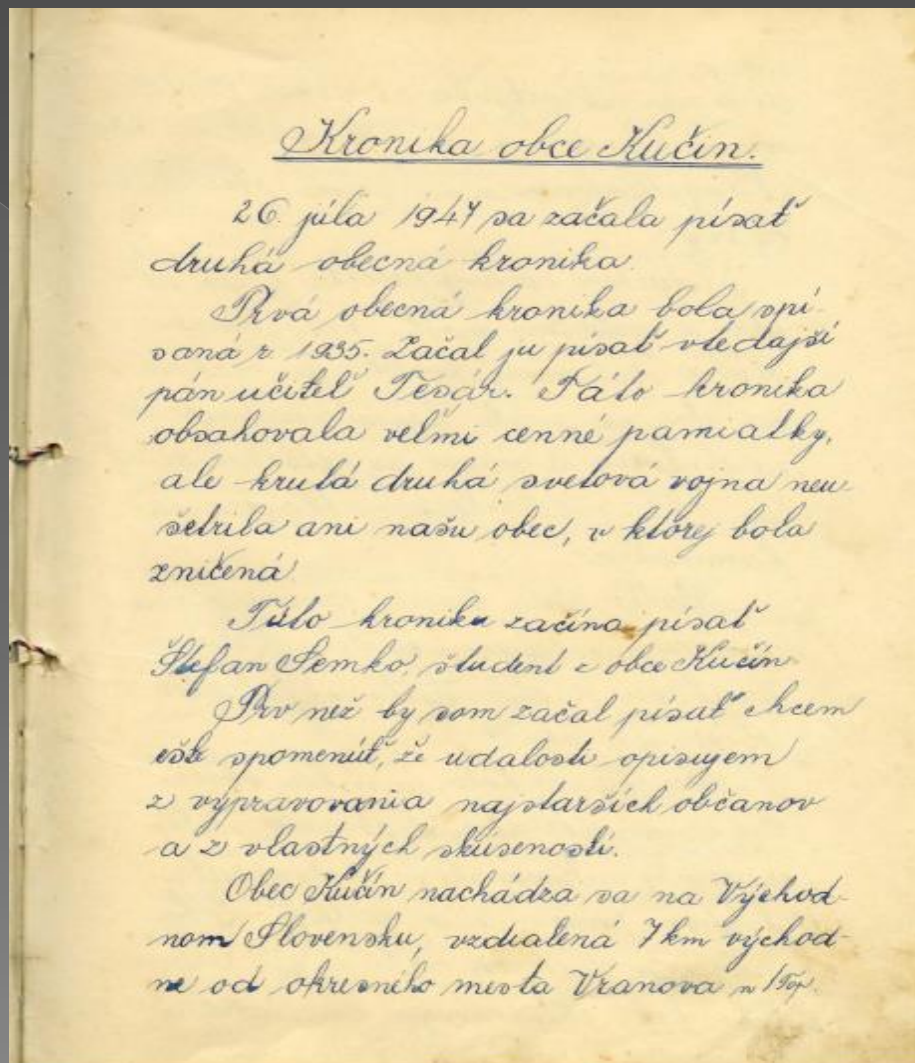 Kronika obce Kučín.
26. júla 1947 sa začala písať
druhá obecná kronika.
Prvá obecná kronika bola spí-
saná r. 1935. Začal ju písať vtedajší
pán učiteľ Tesár. Táto kronika
obsahovala veľmi cenné pamiatky,
ale krutá druhá svetová vojna neu-
šetrila ani našu obec, v ktorej bola
zničená
Túto kroniku začína písať
Štefan Semko, študent z obce Kučín
Prv než by som začal písať chcem
ešte spomenúť, že udalosti opisujem
z vypravovania najstarších občanov
a z vlastných skúseností.
Obec Kučín nachádza sa na Východ-
nom Slovensku, vzdialená 7 km východ-
ne od okresného mesta Vranova n/Top.